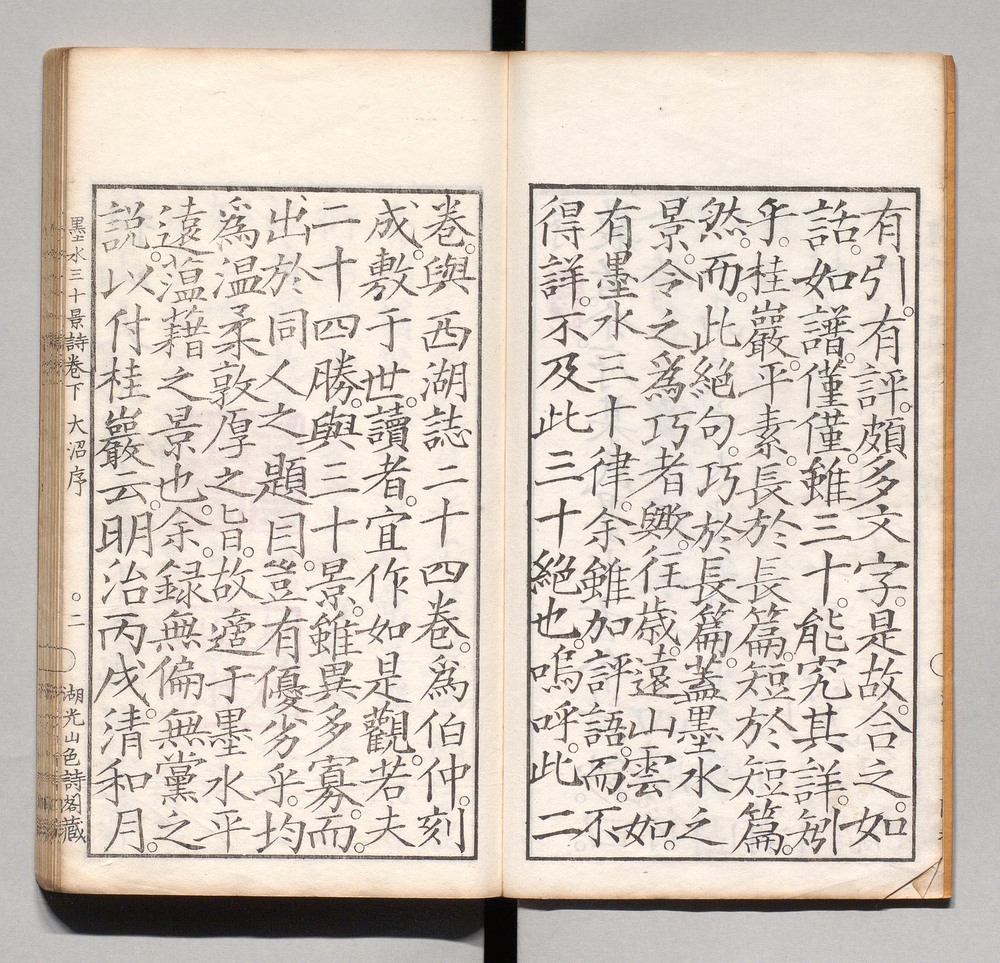 有引。有評。頗多文字。是故。合之。如
話。如譜。僅僅。雖三十。能究其詳。矧
乎。桂巖。平素。長於長篇。短於短篇。
然。而。此絕句。巧於長篇。蓋墨水之
景。令之爲巧者歟。往歲。遠山雲如。
有墨水三十律。余雖加評語。而。不
得詳。不及此三十絕也。嗚呼。此二
卷。與西湖誌二十四卷。爲伯仲。刻
成。敷于世。讀者。宜作如是觀。若夫
二十四勝。與三十景。雖異多寡。而。
出於同人之題目。豈有優劣乎。均
爲温柔敦厚之旨。故。適于墨水平
遠薀藉之景也。余。録無偏無黨之
説。以付桂巖云明治丙戌。清和月。
墨水三十景詩卷下 大沼序 ○二 湖光山色詩閣藏